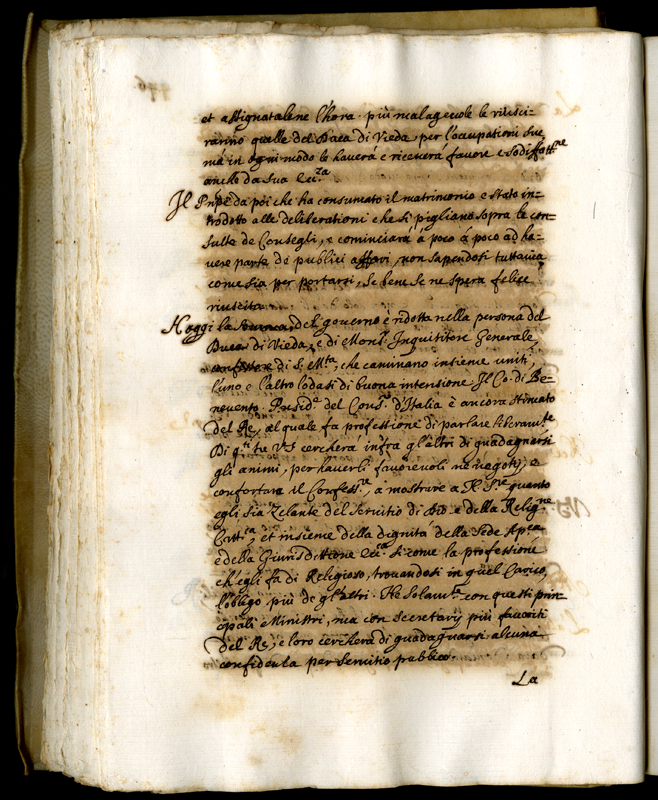 et assignatalene l'hora. più malagevole le riusci-
ranno quelle del Duca di Vieda, per l'occupationi sue,
mà in ogni modo le haverà e riceverà favore e sodisfatt.ne
anche da Sua Ecc.za
Il Pnpe da poi che ha consumato il matrimonio e stato in-
trodotto alle deliberationi che si pigliano sopra le con-
sulte de Consegli, e cominciarà à poco à poco ad ha-
vere parte de publici affari, non sapendosi tuttavia
come sia per portarsi, se bene se ne spera felice
riuscita.
Hoggi la del governo è ridotta nella persona del
Duca di Vieda, e di Mons.r Inquisitore Generale,
confessore di S. M.tà, che caminano insieme uniti,
l'uno e l'altro lodati di buona intensione. Il Co. di Be-
nevento Presid.e del Cons.o d'Italia è ancora stimato
del Re, al quale fa professione di parlare liberam.te
Di q.ti tre VS cercherà infra gl'altri di guadagnarsi
gli animi, per haverli favorevoli ne negotij, e
confortare il Confess.re, à mostrare à N. S.re quanto
egli sia zelante del servitio di Dio e della Relig.ne
Catt.ca, et insieme della dignità della Sede Ap.ca
e della Giurisdittione Ecc.ca si come la professione
ch'egli fa di Religioso, trovandosi in quel Carico,
l'obligo più de gl'altri. Ne solam.te con questi prin-
cipali Ministri, ma con secretarij più favoriti
del Re, e loro cercherà di guadagnarsi alcuna
confidenza per servitio publico.
La